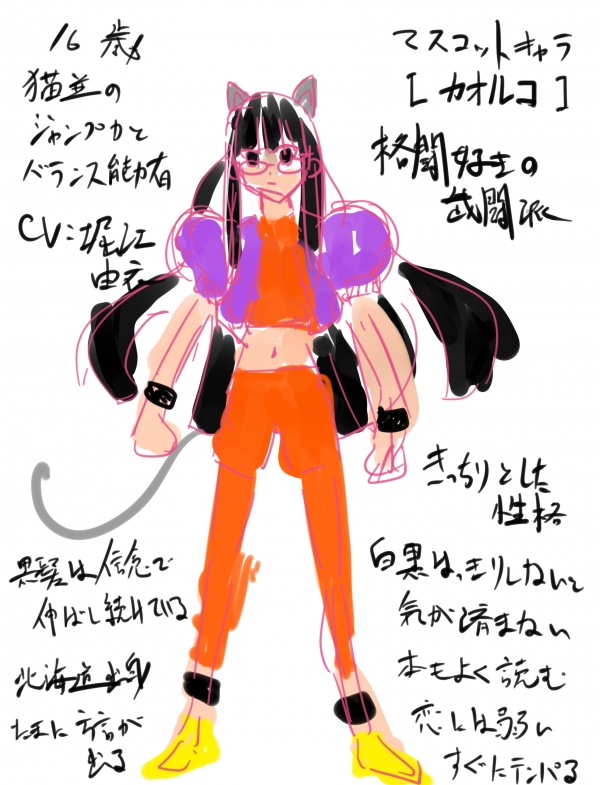 16歳
猫並の
ジャンプ力と
バランス能力者
CV:堀江
由衣
マスコットキャラ
[カオルコ]
格闘好きの
武闘派
きっちりとした
性格
黒髪は信念で
伸ばし続けている
北海道出身
たまに方言が
出る
白黒はっきりしないと
気が済まない
本もよく読む
恋には弱い
すぐにテンパる